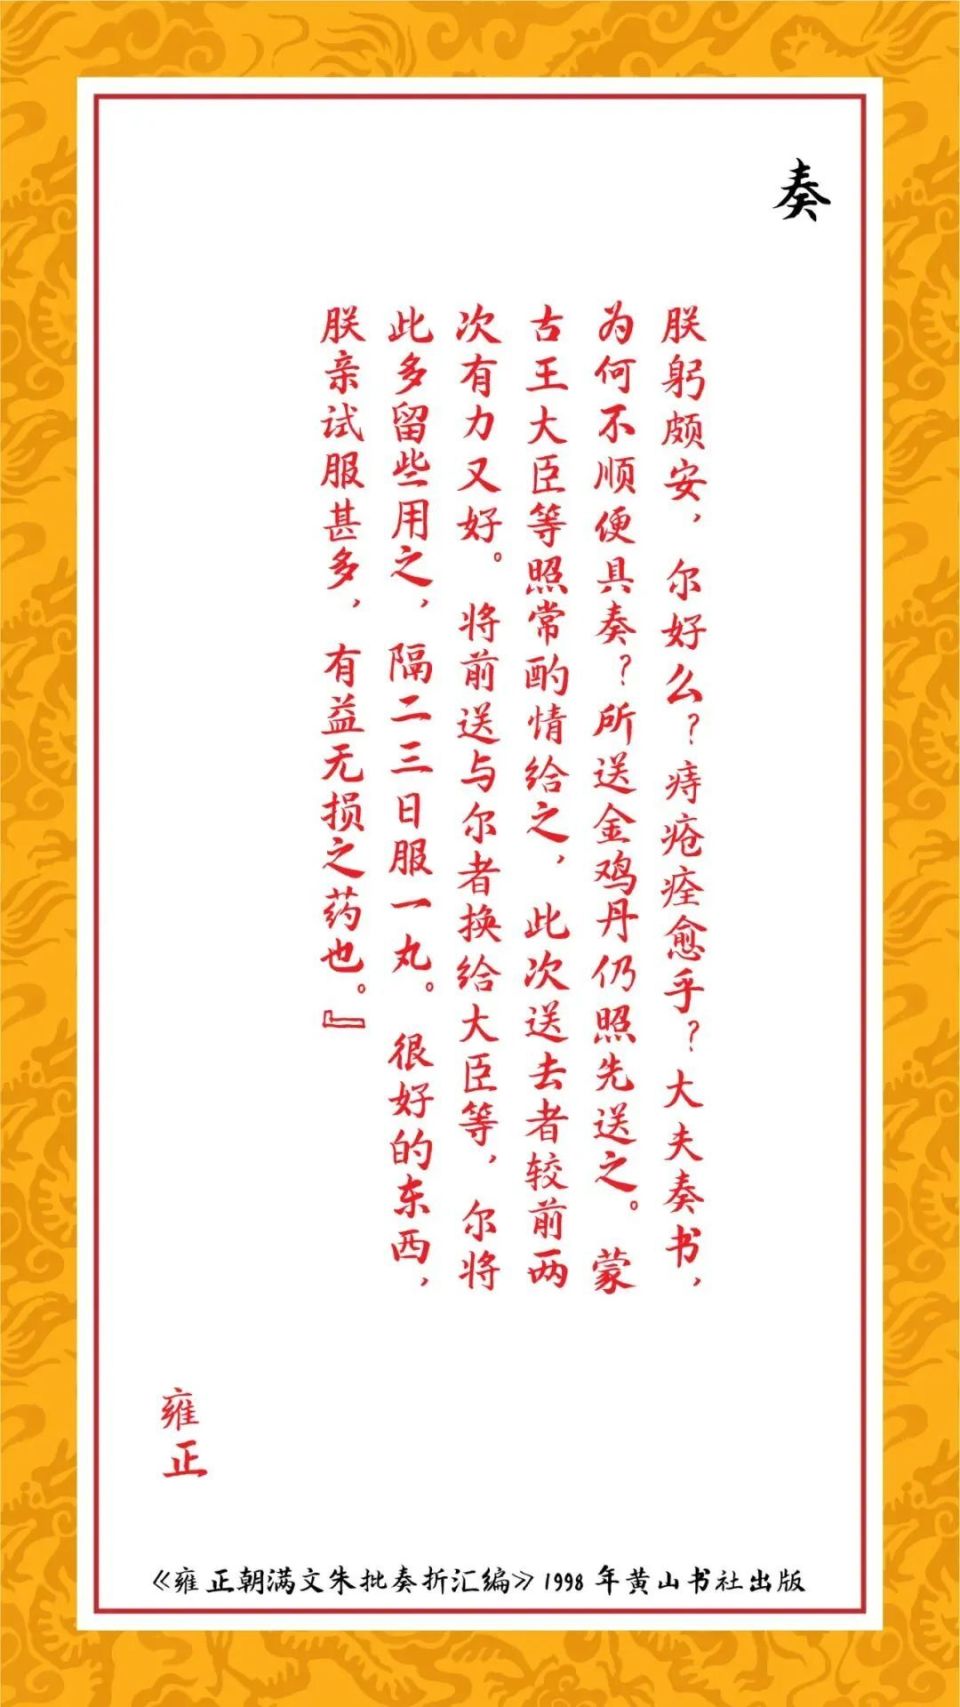 奏
朕躬颇安，尔好么？痔疮痊愈乎？大夫奏书，
为何不顺便具奏？所送金鸡丹仍照先送之。蒙
古王大臣等照常酌情给之，此次送去者较前两
次有力又好。将前送与尔者换给大臣等，尔将
此多留些用之，隔二三日服一丸。很好的东西，
朕亲试服甚多，有益无损之药也。』
雍正
《雍正朝满文朱批奏折汇编》1998年黄山书社出版